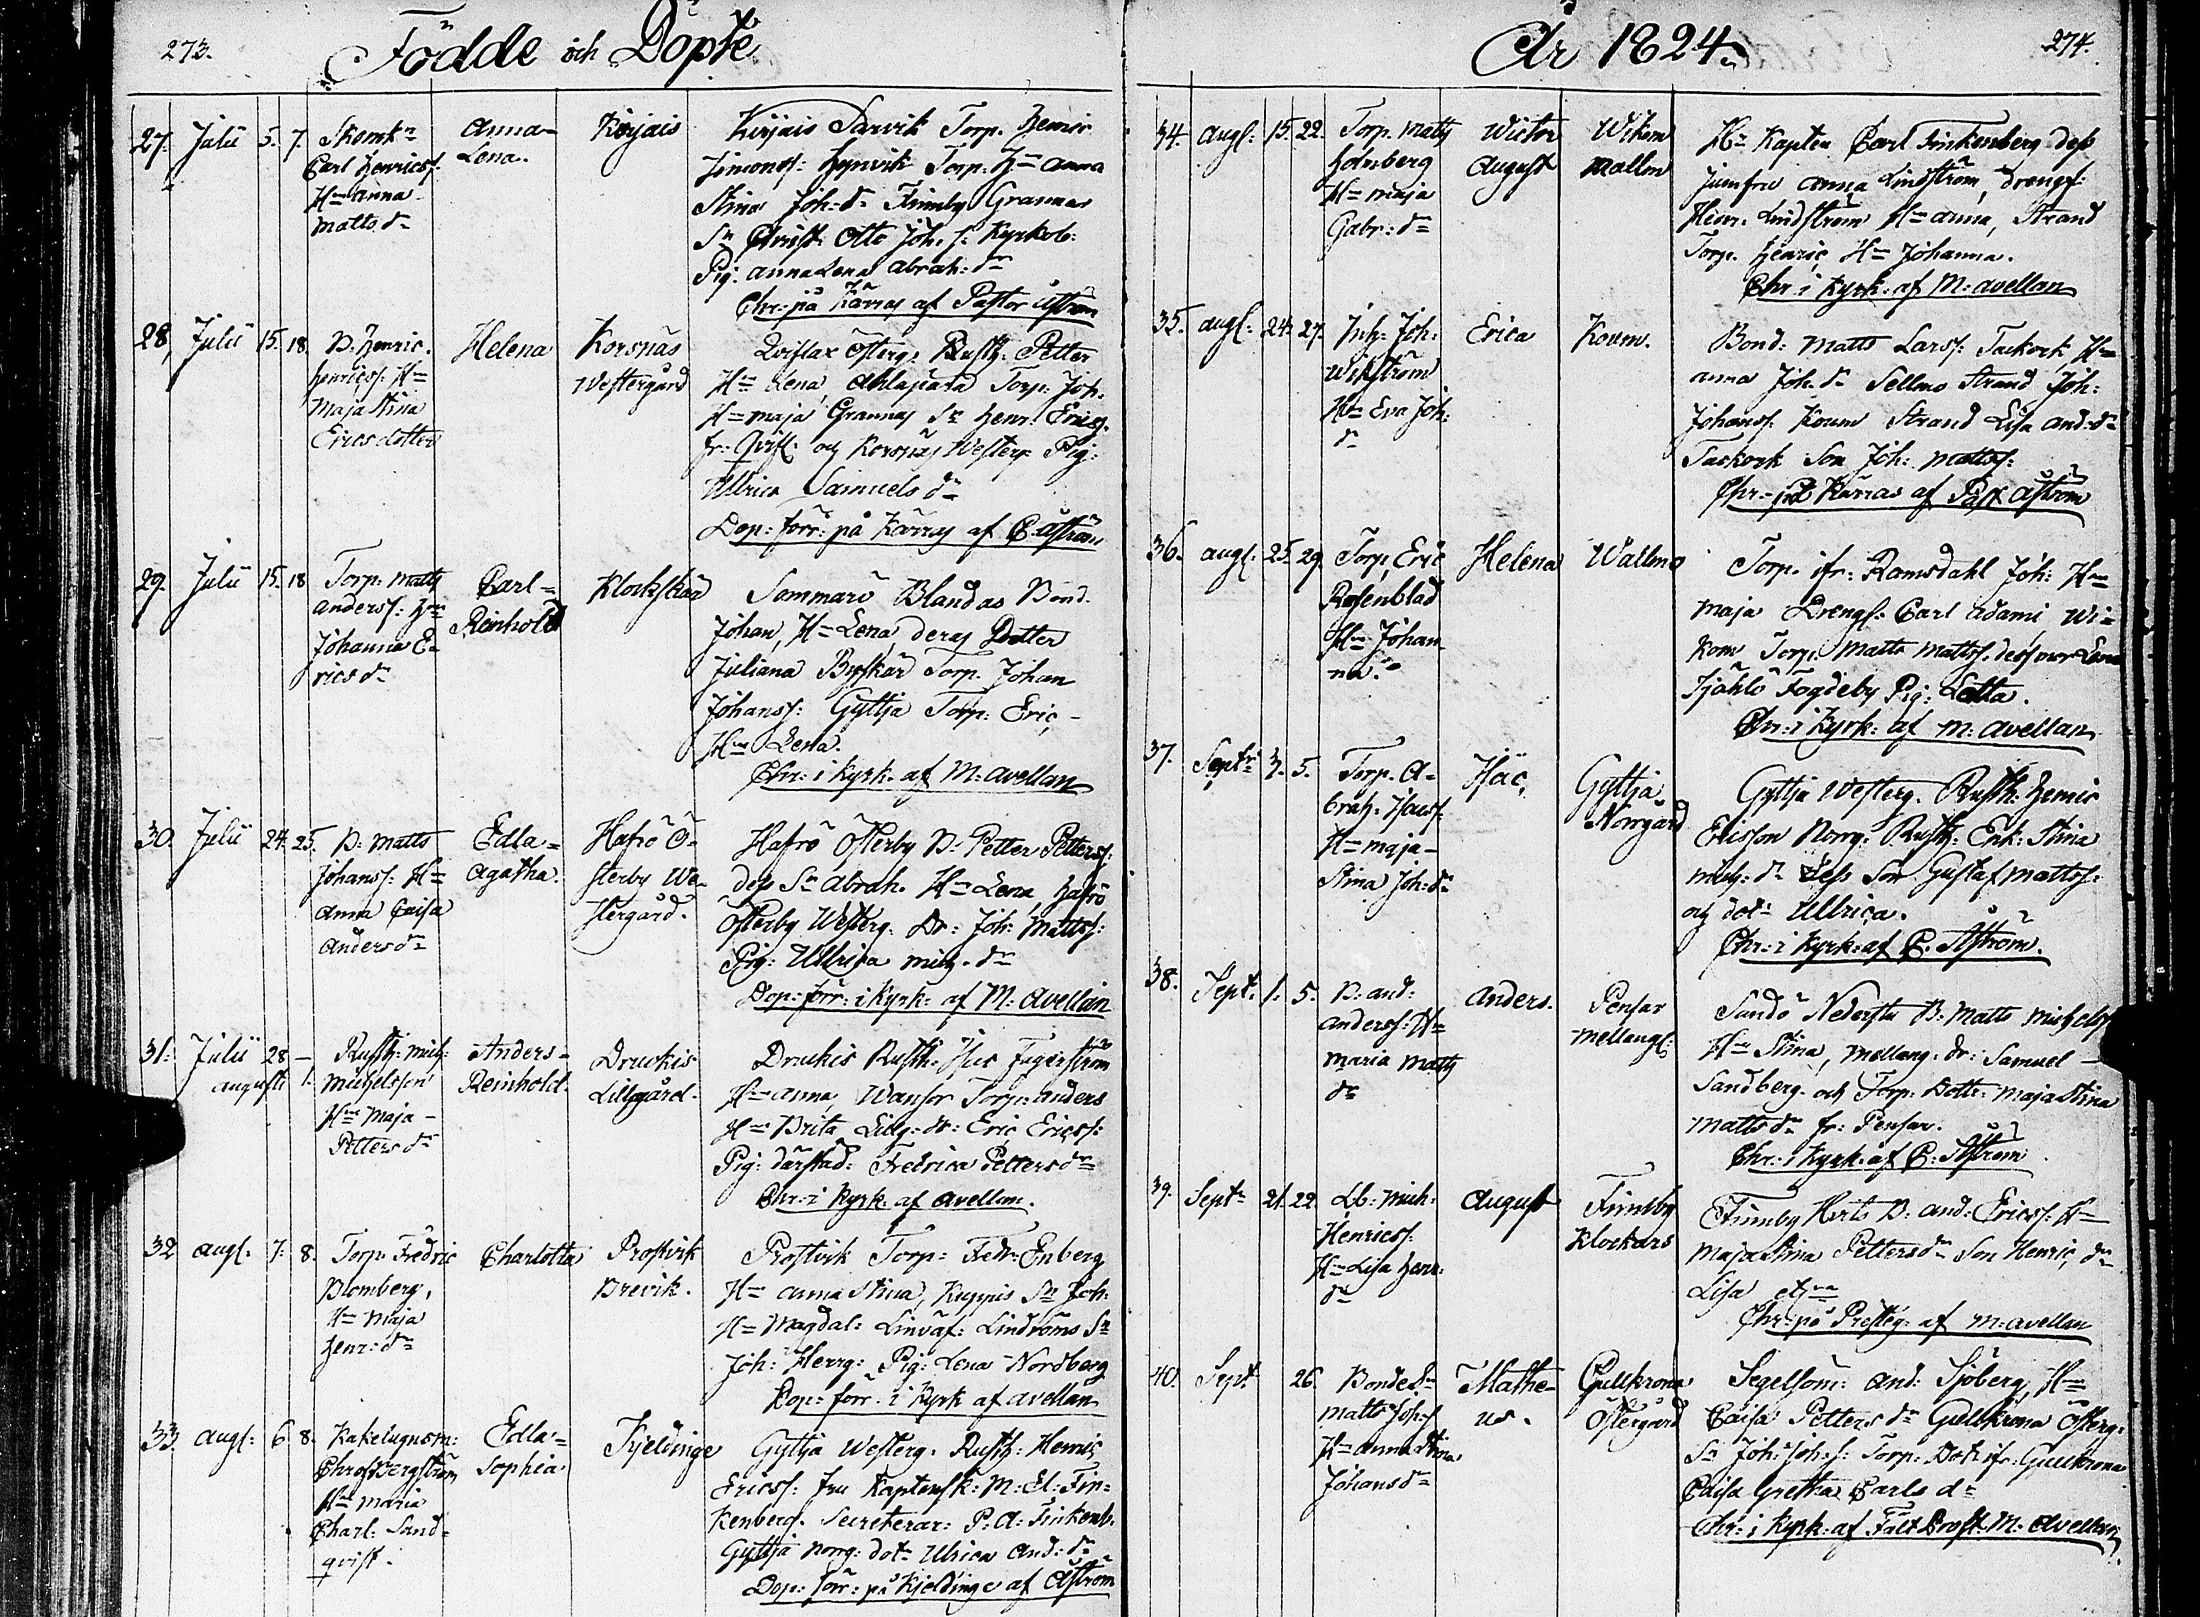 273.
Födde och Döpte
27. Julii 5. 7.
Carl Henricss.
Hn Anna
Matts dr
Anna-
Lena.
Kirjais
Kirjais Torp. Henric
Simonss: Torp. Hn Anna
Stina Joh: dr Finnby Grannas
Sn Christ: Otto Joh. s. Kyrkob:
Pig: Anna Lena Abrah: dr
Chr: på Kärras af Pastor Åström
28, Julii 15. 18.
B. Henric.
Henricss: Hn
Maja Stina
Ericsdotter
Helena
Korsnäs
Westergård
Qviflax Österg: Rusth: Petter
Hn Lena, Torp: Joh.
Hn Maja Grannas Sn Henr: Ericss.
fr: Qvifl: och Korsnäs Westerg: Pig:
Ullrica Samuels dr
Dop: förr: på Kärras af P. Åström
29. Julii 15. 18
Torp: Matts
Anderss: Hn
Johanna E-
rics dr
Carl=
Reinhold
Klockskär
Sommarö Blandas Bond.
Johan, Hn Lena, deras Dotter
Juliana Torp. Johan
Johanss: Gyttja Torp: Eric,
Hn Lena.
Chr: i Kyrk. af M: Avellan
30. Julii 24. 25.
B. Matts
Johanss: Hn
Anna Caisa
Anders dr
Edla=
Agatha.
Hafrö Ö-
sterby We-
stergård.
Hafrö Österby B. Petter Petterss:
dess Sn Abrah. Hn Lena, Hafrö
Österby Westerg. Dr: Joh: Mattss:
Pig: Ullrica Mich. dr
Dop: förr: i Kyrk: af M: Avellan
31: Julii 28 –
Augusti 1.
Rusth: Mich:
Michelsson
Hn Maja
Petters dr
Anders=
Reinhold.
Druckis
Lillgård.
Druckis Rusth. Isac Fagerström
Hn Anna, Wansor Torp: Anders
Hn Brita Lillg: dr: Eric Ericss:
Pig: därstäd: Fredrica Petters dr
Chr: i Kyrk. af Avellan.
32 Aug: 7: 8.
Torp: Fredric
Blomberg,
Hn Maja
Henr: dr
Charlotta
Prostvik
Brevik.
Prostvik Torp: Fedr: Enberg
Hn Anna Stina, Kuppis Sn Joh:
Hn Magdal: Lindroms Sn
Joh: Herrg: Pig: Lena Nordberg
Dop: förr: i Kyrk af Avellan
33. Aug: 6. 8.
Kakelugnsm:
Bergström
Hn Maria
Charl: Sand=
qvist.
Edla=
Sophia
Kjeldinge
Gyttja Westerg. Rusth: Henric
Ericss: Fru Kaptensk: M: El: Fin-
kenberg. Secreterar: P: A: Finkenb.
Gyttja Norrg: dotr Ulrica And: dr
Dop: förr: på Kjeldinge af Åström
År 1824.
274.
34. Aug: 15. 22.
Torp. Matts
Holmberg
Hn Maja
Gabr: dr
Wictor
August
Wikom
Hn Kapten Carl Finkenberg dess
Jumfru Anna Lindström, Drengs:
Henr. Lindström Hn Anna, Strand
Torp. Henric, Hn Johanna.
Chr. i Kyrk. af M: Avellan
35. Aug: 24. 27.
Inh: Joh:
Wikström
Hn Eva Joh:
dr
Erica
Koum.
Bond: Matts Larss: Taskork Hn
Anna Joh. dr Sellmo Strand Joh:
Johanss: Koum Strand Lisa And: dr
Taskork Son Joh: Mattss:
Chr: på Kärras af Past Åström
36. Aug: 25. 29.
Torp, Eric
Rosenblad
Hn Johan
na.
Helena
Wallmo
Torp. ifr: Ramsdahl Joh: Hn
Maja Drengs: Carl Adami, Wi=
kom Torp: Matts Mattss. dess mor Lena
Sjöhlö Fogdeby Pig: Lotta.
Chr: i Kyrk: af M: Avellan
37. Septr 3. 5.
Torp. A-
brah. Isacss.
Hn Maja-
Stina Joh: dr
Isac,
Gyttja
Norrgård
Gyttja Westerg. Rusth: Henric
Ericsson Norrg: Rusth: Enk: Stina
Mich: dr dess Son Gustaf Mattss:
och dotr Ullrica.
Chr: i Kyrk: af P. Åström.
38. Sept. 1. 5.
B: And:
Anderss: Hn
Maria Matts
dr
Anders.
Pensar
Mellang:
Sandö Nedersta B: Matts Michelss
Hn Stina, Mellang. dr: Samuel
Sandberg. och Torp: Dottr: Maja Stina
Matts dr fr: Pensar.
Chr: i Kyrk. af P: Åström
39. Septr 21. 22.
Lb: Mich:
Henricss:
Hn Lisa Henr:
dr
August
Finnby
Klockars
Finnby Herts B. And: Ericss: Hn
Maja Stina Petters dr Son Henric, dr
Lisa
Chr: på Presteg: af M: Avellan
40. Sept 26.
Bonde Sn
Matts Joh: s
Hn Anna Stina
Johans dr
Mathe-
us.
Gullkrona
Östergård
Segelsöm: And: Sjöberg, Hn
Caisa Petters dr Gullkrona Österg:
Sn Joh: Joh: s: Torp: Dotr ifr: Gullkrona
Caisa Gretha Carls dr
Chr: i Kyrk: af Fält Prost. M: Avellan